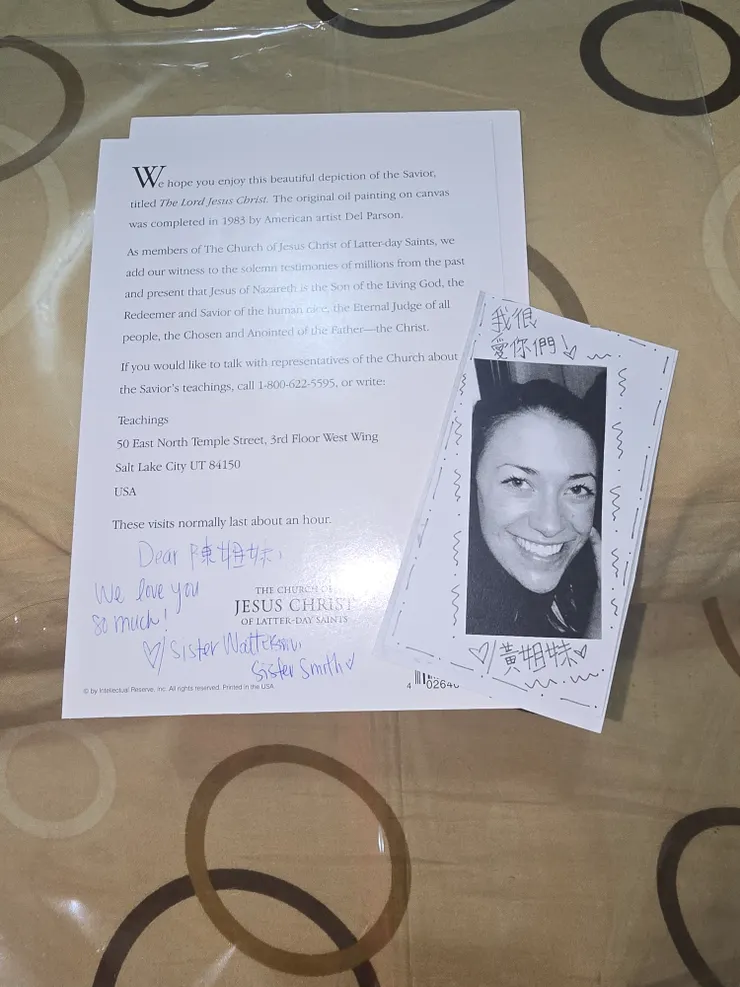 We hope you enjoy this beautiful depiction of the Savior,
titled The Lord Jesus Christ. The original oil painting on canvas
was completed in 1983 by American artist Del Parson.
As members of The Church of Jesus Christ of Latter-day Saints, we
add our witness to the solemn testimonies of millions from the past
and present that Jesus of Nazareth is the Son of the Living God, the
Redeemer and Savior of the human race, the Eternal Judge of all
people, the Chosen and Anointed of the Father—the Christ.
If you would like to talk with representatives of the Church about
the Savior's teachings, call 1-800-622-5595, or write:
Teachings
50 East North Temple Street, 3rd Floor West Wing
Salt Lake City UT 84150
USA
These visits normally last about an hour.
Dear 陳姐妹,
We love you
so much!
Sister Watterson,
Sister Smith
THE CHURCH OF
JESUS CHRIST
OF LATTER-DAY SAINTS
© by Intellectual Reserve, Inc. All rights reserved. Printed in the USA
4 02640
我很
愛你們!
黃姐妹